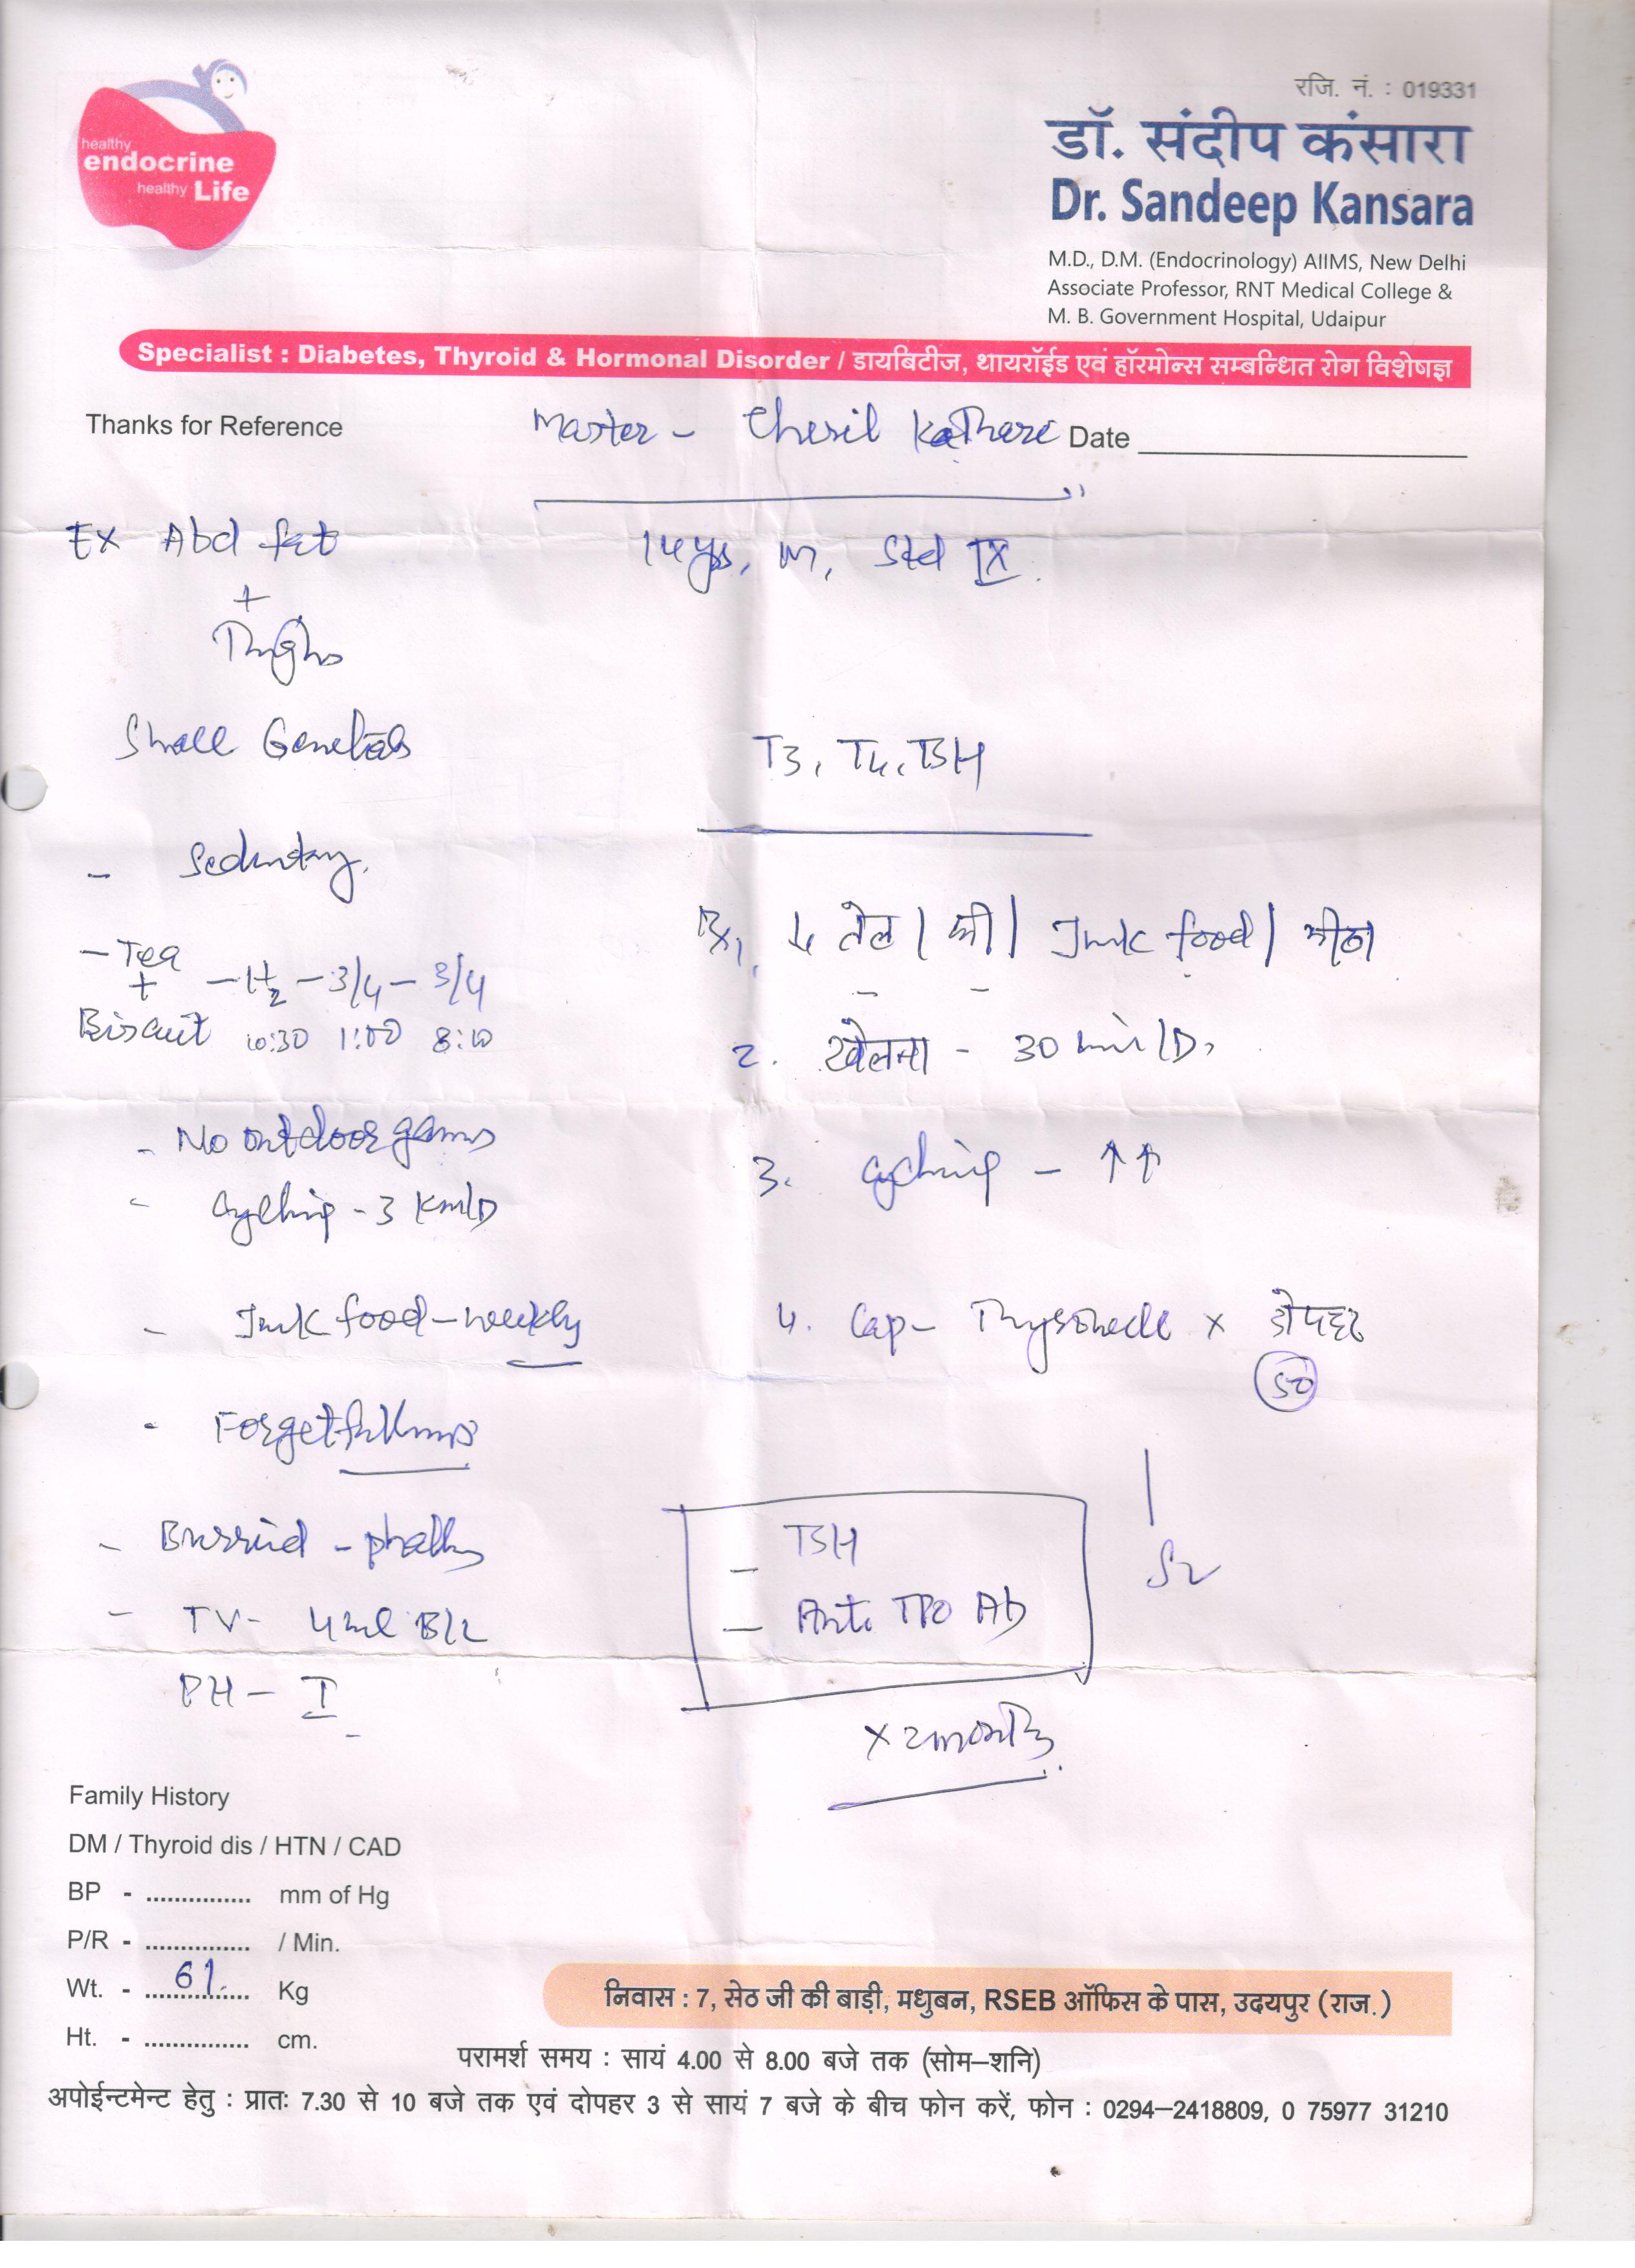 healthy
endocrine
healthy Life
रजि. नं. : 019331
डॉ. संदीप कंसारा
Dr. Sandeep Kansara
M.D., D.M. (Endocrinology) AIIMS, New Delhi
Associate Professor, RNT Medical College &
M. B. Government Hospital, Udaipur
Specialist : Diabetes, Thyroid & Hormonal Disorder / डायबिटीज, थायरॉईड एवं हॉरमोन्स सम्बन्धित रोग विशेषज्ञ
Thanks for Reference Master - Cheril Date
Ex Abd fat
+
Thighs
14 yrs, M, Std IX
Small Genitals
T3, T4, TSH
- Sedentary
- Tea
+
Biscuit
- 3/4 - 3/4
10:30 1:00
Rx 1. ↓ तेल / घी / Junk food / मीठा
2. खेलना - 30 min/D
- No outdoor games
- Cycling - 3 Km/D
3. Cycling - ↑↑
- Junk food - weekly
4. Cap - x दोपहर
50
- Forgetfullness
- Burried - phallus
- TV -
PH - I
- TSH
- Anti TPO Ab
x 2 months
Family History
DM / Thyroid dis / HTN / CAD
BP - ............... mm of Hg
P/R - ............... / Min.
Wt. - 61 Kg
Ht. - ............... cm.
निवास : 7, सेठ जी की बाड़ी, मधुबन, RSEB ऑफिस के पास, उदयपुर (राज.)
परामर्श समय : सायं 4.00 से 8.00 बजे तक (सोम–शनि)
अपोईन्टमेन्ट हेतु : प्रातः 7.30 से 10 बजे तक एवं दोपहर 3 से सायं 7 बजे के बीच फोन करें, फोन : 0294–2418809, 0 75977 31210